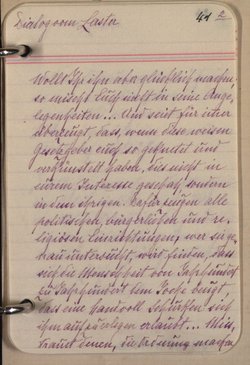 Dialog vom Laster
41 2
Wollt Ihr ihn aber glücklich machen,
so mischt Euch nicht in seine Ange-
legenheiten... Und seid für immer
überzeugt, dass, wenn diese weisen
Gesetzgeber euch so geknetet und
verhunzt haben, dies nicht in
eurem Interesse geschah sondern
in dem ihrigen. Es zeugen alle
politischen, bürgerlichen und re-
ligiösen Einrichtungen; wer sie ge-
nau untersucht, wird finden, dass
sich die Menschheit von Jahrhundert
zu Jahrhundert dem Joche beugt,
das eine Handvoll Schurken sich
ihm aufzuerlegen erlaubt... Miss-
traut denen, die Ordnung machen